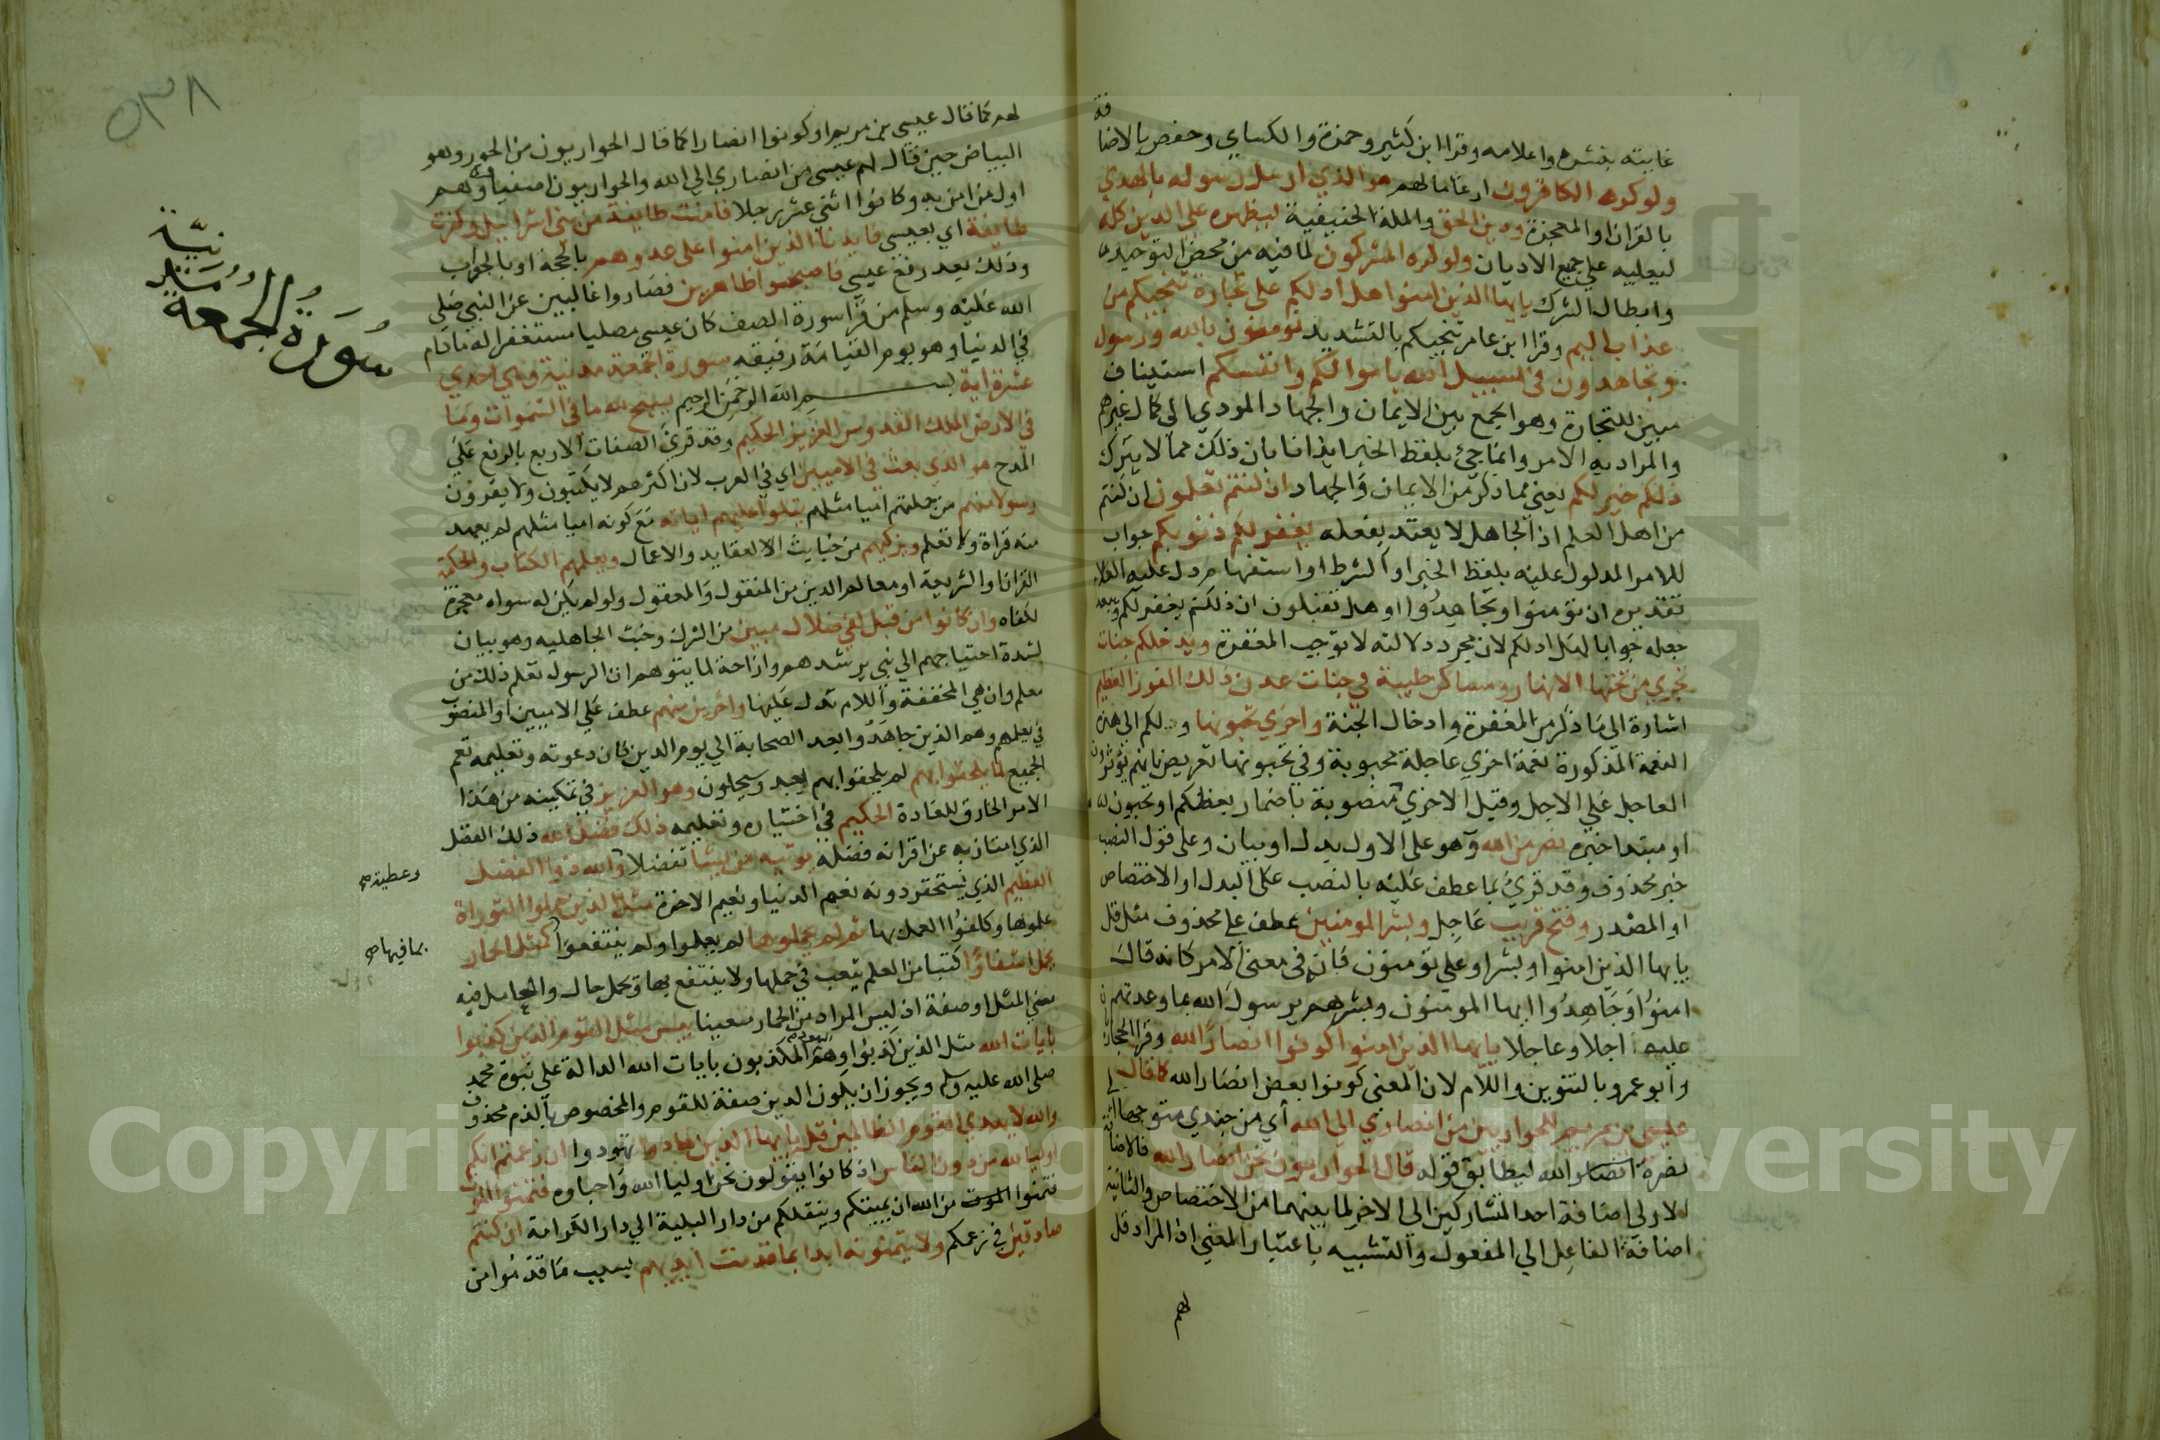 غايته بنشره واعلامه وقرا ابن كثير وحمزة والكساي وحفص بالاضا
فة
ولو كره الكافرون ارغاما لهم هو الذي ارسل رسوله بالهدي
بالقران او المعجزة ودين الحق والملة الحنيفية ليظهره علي الدين كله
ليعليه علي جميع الاديان ولو كره المشركون لما فيه من محض التوحيد
وابطال الشرك يايها الذين امنوا هل ادلكم علي تجارة تنجيكم من
عذاب اليم وقرا ابن عامر تنجيكم بالتشديد تومنون بالله ورسوله
وتجاهدون في سبيل الله باموالكم وانفسكم استيناف
مبين للتجارة وهو الجمع بين الايمان والجهاد المودي الي كمال غيرهم
والمراد به الامر وانما جيئ بلفظ الخبر ايذانا بان ذلك مما لا يترك
ذلكم خير لكم يعني ما ذكر من الايمان والجهاد ان كنتم تعلمون ان كنتم
من اهل العلم اذ الجاهل لا يعتد بفعله يغفر لكم ذنوبكم جواب
للامر المدلول عليه بلفظ الخبر او الشرط او استفهام دل عليه الكلام
تقديره ان تومنوا وتجاهدوا او هل تقبلون ان ادلكم يغفر لكم وبعد
جعله جوابا لهل ادلكم لان مجرد دلالته لا توجب المغفرة ويدخلكم جنات
تجري من تحتها الانهار ومساكن طيبة في جنات عدن ذلك الفوز العظيم
اشارة الي ما ذكر من المغفرة وادخال الجنة واخري تحبونها ولكم الي هذه
النعمة المذكورة نعمة اخري عاجلة محبوبة وفي تحبونها تعريض بانهم يوثرون
العاجل علي الاجل وقيل الاخري منصوبة باضمار يعطكم او تحبون
او مبتدا خبره نصر من الله وهو علي الاول بدل او بيان وعلي قول النصب
خبر محذوف وقد قرئ بما عطف عليه بالنصب علي البدل او الاختصاص
او المصدر وفتح قريب عاجل وبشر المومنين عطف علي محذوف مثل قل
يايها الذين امنوا وبشر او علي تومنون فانه في معني الامر كانه قال
امنوا وجاهدوا ايها المومنون وبشرهم يرسول الله بما وعدتهم
عليه اجلا وعاجلا يايها الذين امنوا كونوا انصار الله وقرا الحجازيان
وابو عمرو بالتنوين واللام لان المعني كونوا بعض انصار الله كما قال
عيسي بن مريم للحواريين من انصاري الي الله اي من جندي متوجها الي
نصرة الله ليطابق قوله قال الحواريون نحن انصار الله فالاضافة
الاولي اضافة احد المتشاركين الي الاخر لما بينهما من الاختصاص والثانية
اضافة الفاعل الي المفعول والتشبيه باعتبار المعني اذ المراد قل
لهم
٥٣٨
لهم كما قال عيسي بن مريم او كونوا انصارا كما قال الحواريون من الحور وهو
البياض حين قال لهم عيسي من انصاري الي الله والحواريون اصفياوه وهم
اول من امن به وكانوا اثني عشر رجلا فامنت طايفة من بني اسرائيل وكفرت
طايفة اي بعيسي فايدنا الذين امنوا علي عدوهم بالحجة او بالحراب
وذلك بعد رفع عيسي فاصبحوا ظاهرين فصاروا غالبين عن النبي صلي
الله عليه وسلم من قرا سورة الصف كان عيسي مصليا مستغفرا له مادام
في الدنيا وهو يوم القيامة رفيقه سورة الجمعة مدنية وهي احدي
عشرة اية بسم الله الرحمن الرحيم يسبح لله ما في السموات وما
في الارض الملك القدوس العزيز الحكيم وقد قرئ الصفات الاربع بالرفع علي
المدح هو الذي بعث في الاميين اي في العرب لان اكثرهم لا يكتبون ولا يقرون
رسولا منهم من جملتهم اميا مثلهم يتلوا عليهم اياته مع كونه اميا مثلهم لم يعهد
منه قراة ولا تعلم ويزكيهم من خبايث الاعقايد والاعمال ويعلمهم الكتاب والحكمة
القران والشريعة او معالم الدين من المنقول والمعقول ولو لم يكن له سواه معجزة
لكفاه وان كانوا من قبل لفي ضلال مبين من الشرك وخبث الجاهليه وهو بيان
لشدة احتياجهم الي نبي يرشدهم وازاحة لما يتوهم ان الرسول تعلم ذلك من
معلم وان هي المخففة واللام تدل عليها واخرين منهم عطف علي الاميين او المنصوب
في يعلمهم وهم الذين جاهدوا بعد الصحابة الي يوم الدين فان دعوته وتعليمه تعم
الجميع لما يلحقوا بهم لم يلحقوا بهم بعد وسيحلون وهو العزيز في تمكينه من هذا
الامر الخارق للعادة الحكيم في اختياره وتعليمه ذلك فضل الله ذلك الفضل
الذي امتاز به عن اقرانه فضله يوتيه من يشا تفضلا والله ذوا الفضل
وعطية صح
العظيم الذي يستحقر دونه نعيم الدنيا ونعيم الاخرة مثل الذين حملوا التوراة
علموها وكلفوا العمل بها ثم لم يحملوها لم يعملوا ولم ينتفعوا كمثل الحمار
بما فيها صح
يحمل اسفارا كتبا من العلم يتعب في حملها ولا ينتفع بها ويحمل حال والعامل فيه
معني المثل او صفة اذ ليس المراد من الحمار معينا بيس مثل القوم الذين كذبوا
بايات الله مثل الذين كذبوا وهم المكذبون بايات الله الدالة علي نبوة محمد
صلي الله عليه وسلم ويجوز ان يكون الذين صفة للقوم والمخصوص بالذم محذوف
والله لا يهدي القوم الظالمين قل يايها الذين هادوا تهودوا ان زعمتم انكم
اوليا لله من دون الناس اذ كانوا يقولون نحن اوليا الله واحباوه فتمنوا الموت
فتمنوا الموت من الله ان يميتكم وينقلكم من دار البلية الي دار الكرامة ان كنتم
صادقين في زعمكم ولا يتمنونه ابدا بما قدمت ايديهم بسبب ما قدموا من
سورة الجمعة
مدنية
Copyright © King Saud University